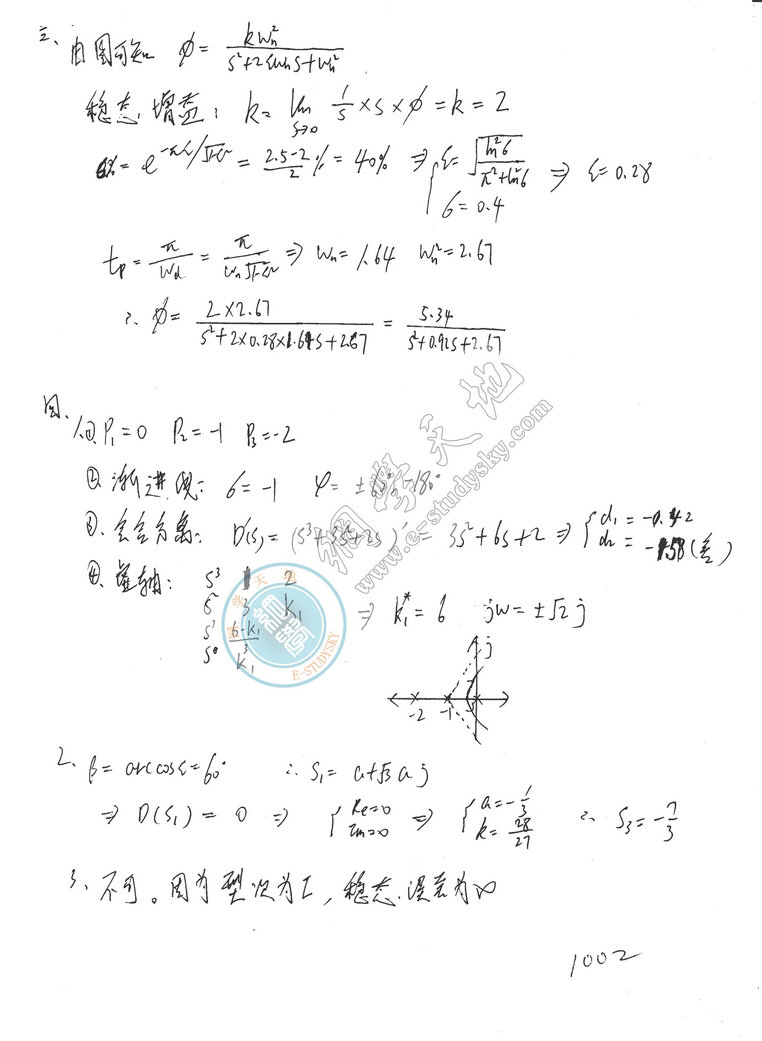 三、由图可知 ϕ = kwn² / (s²+2ξwns+wn²)
稳态增益: k = lim s→0 1/s × s × ϕ = k = 2
σ% = e^(-πξ/√1-ξ²) = (2.5-2)/2 % = 40% ⇒ { ξ = √(ln²σ / (π²+ln²σ)) ⇒ ξ = 0.28
σ = 0.4
tp = π/wd = π/(wn√1-ξ²) ⇒ wn = 1.64 wn² = 2.67
∴ ϕ = 2×2.67 / (s²+2×0.28×1.64s+2.67) = 5.34 / (s²+0.92s+2.67)
四、
1.① P₁=0 P₂=-1 P₃=-2
②、渐进线: σ=-1 φ=±60°, 180°
③、会合分离: D'(s) = (s³+3s²+2s)' = 3s²+6s+2 ⇒ { d₁ = -0.42
d₂ = -1.58 (舍)
④、虚轴: s³ 1 2
s² 3 k₁ ⇒ k₁* = 6 jw = ±√2 j
s¹ (6-k₁)/3
s⁰ k₁
j
-2 -1
2、β = arccosξ = 60° ∴ s₁ = a+√3 a j
⇒ D(s₁) = 0 ⇒ { Re=0 Im=0 ⇒ { a=-1/3 k=28/27 ∴ s₃ = -7/3
3、不可。因为型次为I, 稳态误差为∞
1002
網學天地
www.e-studysky.com
網學天地
E-STUDYSKY